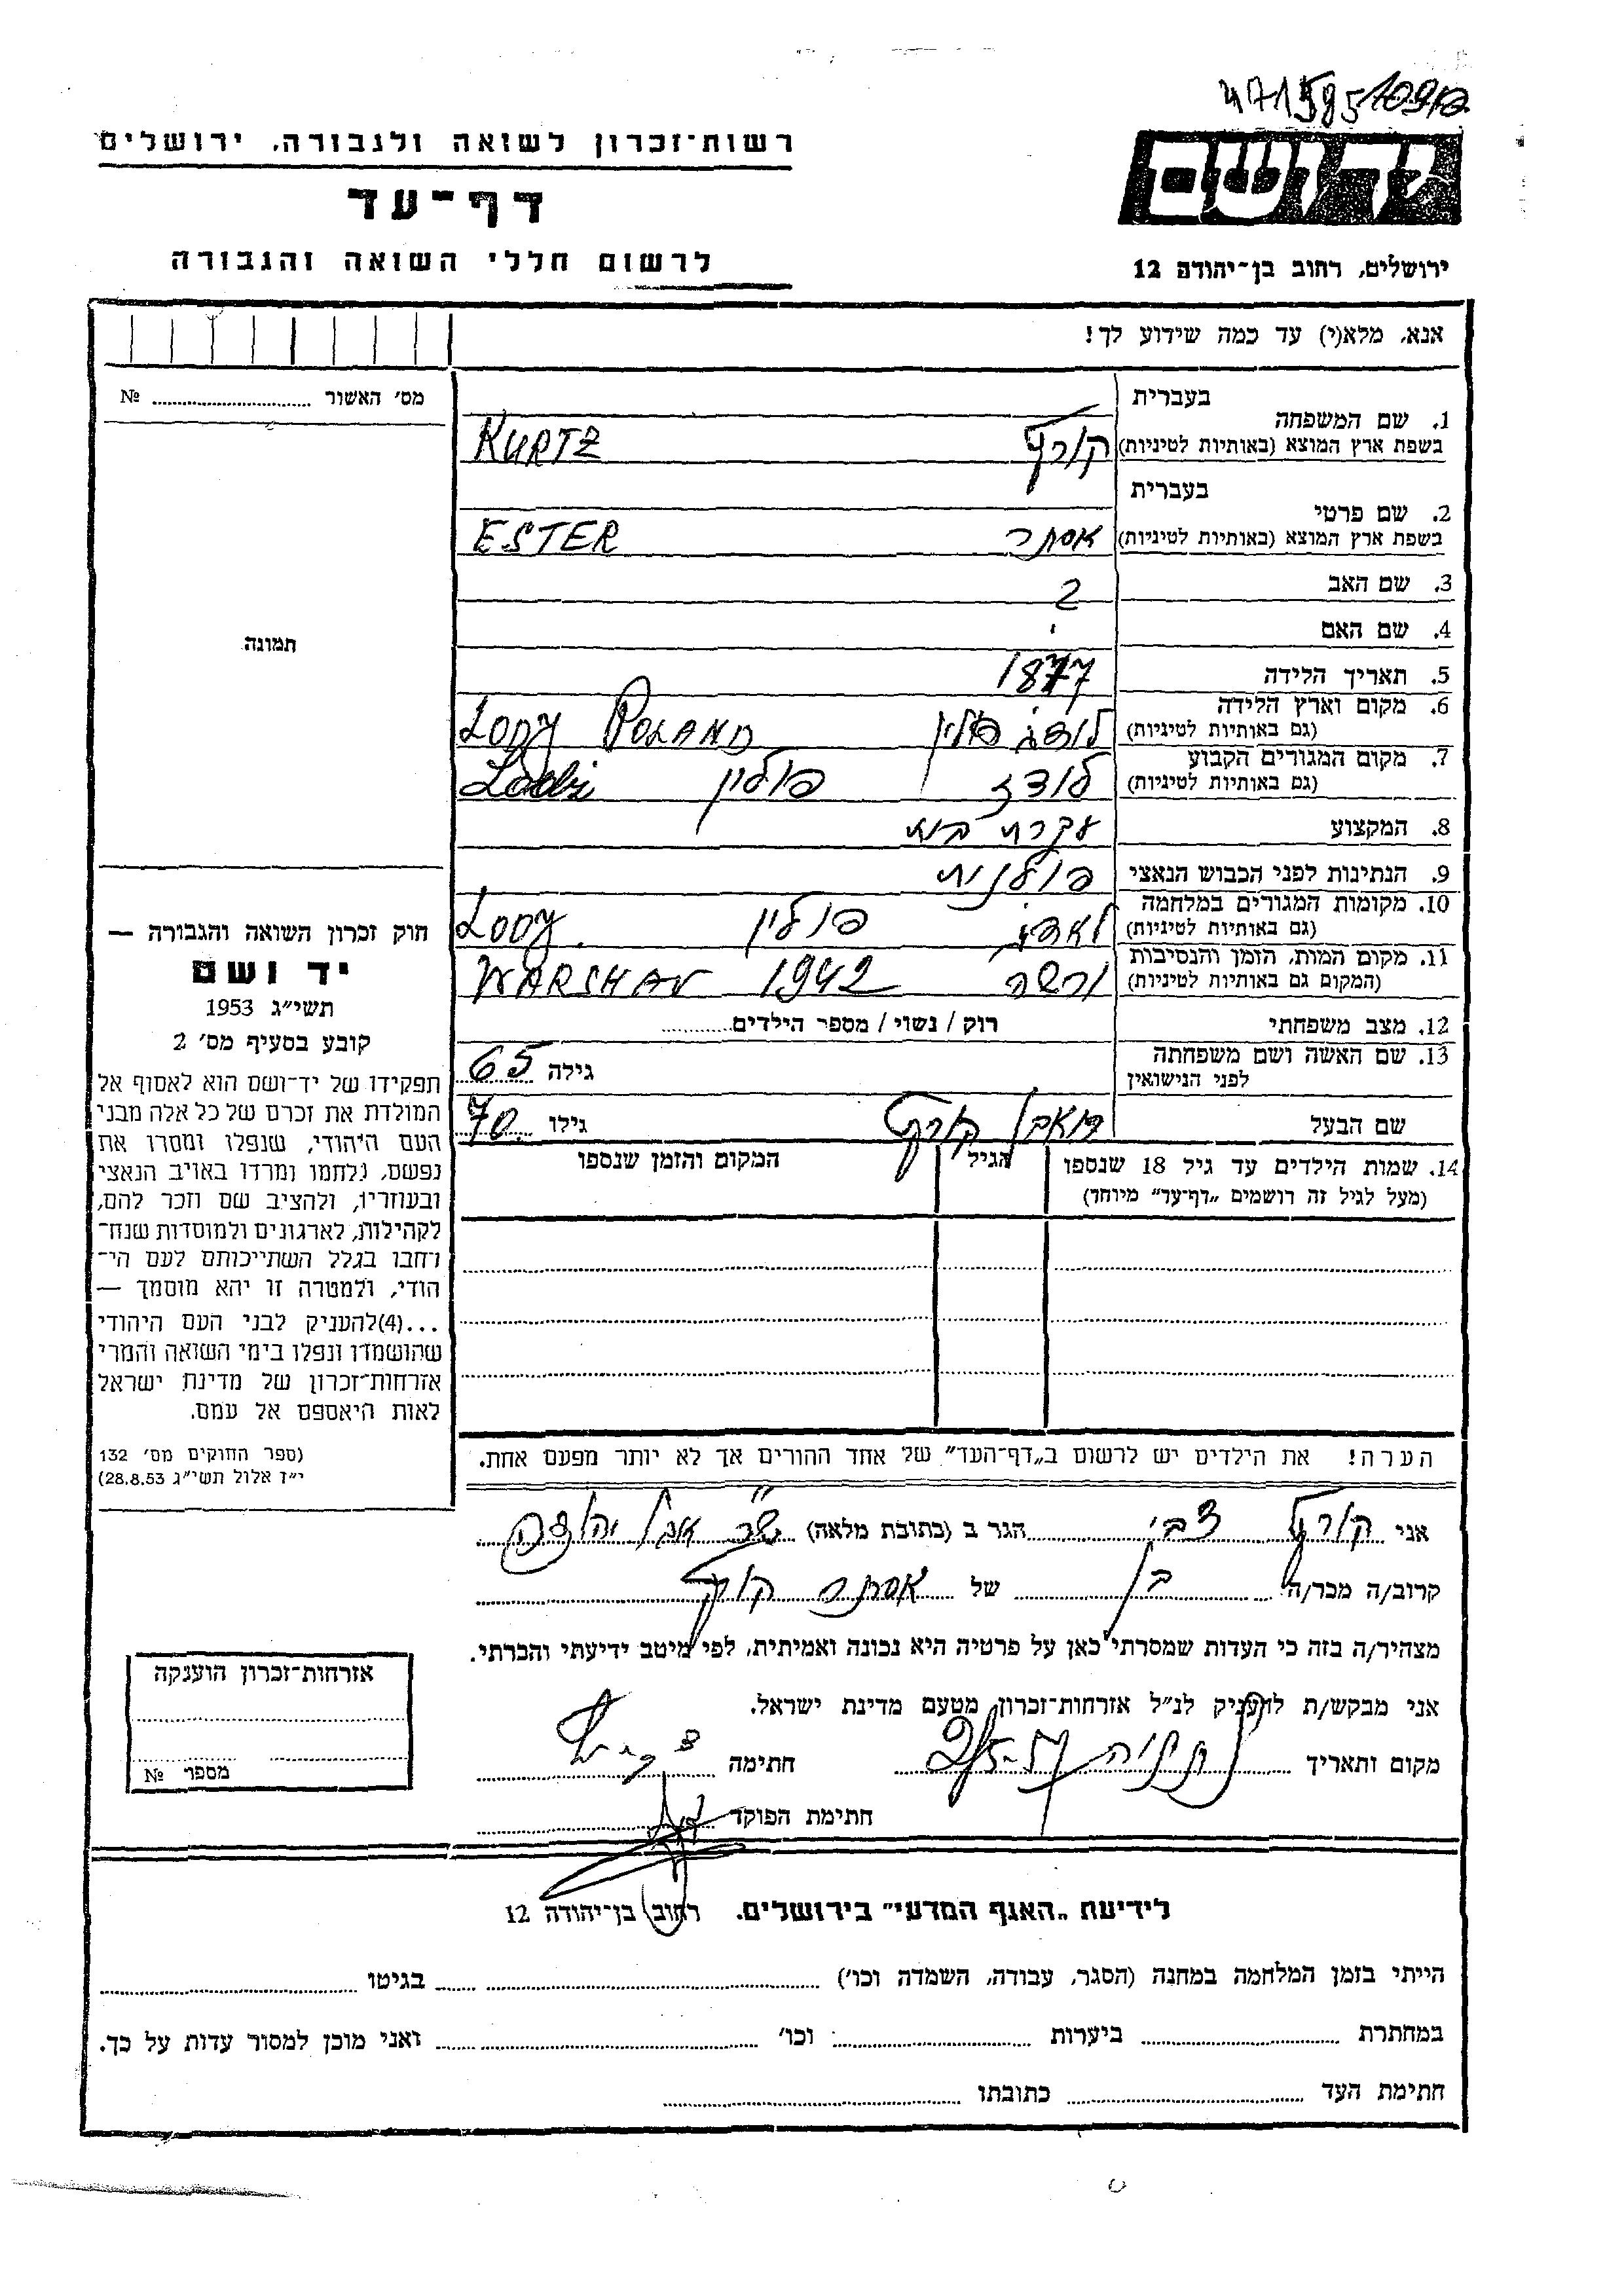 רשות־זכרון לשואה ולגבורה, ירושלים
דף־עד
לרשום חללי השואה והגבורה
יד ושם
ירושלים, רחוב בן־יהודה 12
אנא, מלא(י) עד כמה שידוע לך!
מס׳ האשור № ..........
1. שם המשפחה בעברית
בשפת ארץ המוצא (באותיות לטיניות) קורץ KURTZ
2. שם פרטי בעברית
בשפת ארץ המוצא (באותיות לטיניות) אסתר ESTER
3. שם האב
4. שם האם
5. תאריך הלידה 1877
6. מקום וארץ הלידה
(גם באותיות לטיניות) לודז׳ פולין Lodz POLAND
7. מקום המגורים הקבוע
(גם באותיות לטיניות) לודז פולין Lodz
8. המקצוע עקרת בית
9. הנתינות לפני הכבוש הנאצי פולנית
10. מקומות המגורים במלחמה
(גם באותיות לטיניות) לודז׳ פולין Lodz
11. מקום המות, הזמן והנסיבות
(המקום גם באותיות לטיניות) ורשה 1942 WARSHAV
12. מצב משפחתי רוק / נשוי / מספר הילדים..........
13. שם האשה ושם משפחתה
לפני הנישואין גילה 65
שם הבעל קורץ גילו 70
14. שמות הילדים עד גיל 18 שנספו הגיל המקום והזמן שנספו
(מעל לגיל זה רושמים „דף־עד״ מיוחד)
תמונה
חוק זכרון השואה והגבורה —
יד ושם
תשי״ג 1953
קובע בסעיף מס׳ 2
תפקידו של יד־ושם הוא לאסוף אל
המולדת את זכרם של כל אלה מבני
העם היהודי, שנפלו ומסרו את
נפשם, נלחמו ומרדו באויב הנאצי
ובעוזריו, ולהציב שם וזכר להם,
לקהילות, לארגונים ולמוסדות שנח־
רחבו בגלל השתייכותם לעם הי־
הודי, ולמטרה זו יהא מוסמך —
...(4)להעניק לבני העם היהודי
שהושמדו ונפלו בימי השואה והמרי
אזרחות־זכרון של מדינת ישראל
לאות היאספם אל עמם.
(ספר החוקים מס׳ 132
י״ז אלול תשי״ג 28.8.53)
הערה! את הילדים יש לרשום ב„דף־העד״ של אחד ההורים אך לא יותר מפעם אחת.
אני קורץ צבי הגר ב (כתובת מלאה)
קרוב/ה מכר/ה בן של אסתר קורץ
מצהיר/ה בזה כי העדות שמסרתי כאן על פרטיה היא נכונה ואמיתית, לפי מיטב ידיעתי והכרתי.
אני מבקש/ת להעניק לנ״ל אזרחות־זכרון מטעם מדינת ישראל.
מקום ותאריך נתניה חתימה
חתימת הפוקד
אזרחות־זכרון הוענקה
מספר №
לידיעת „האגף המדעי״ בירושלים, רחוב בן־יהודה 12
הייתי בזמן המלחמה במחנה (הסגר, עבודה, השמדה וכו׳) .......... בגיטו ..........
במחתרת .......... ביערות .......... וכו׳ .......... ואני מוכן למסור עדות על כך.
חתימת העד .......... כתובתו ..........